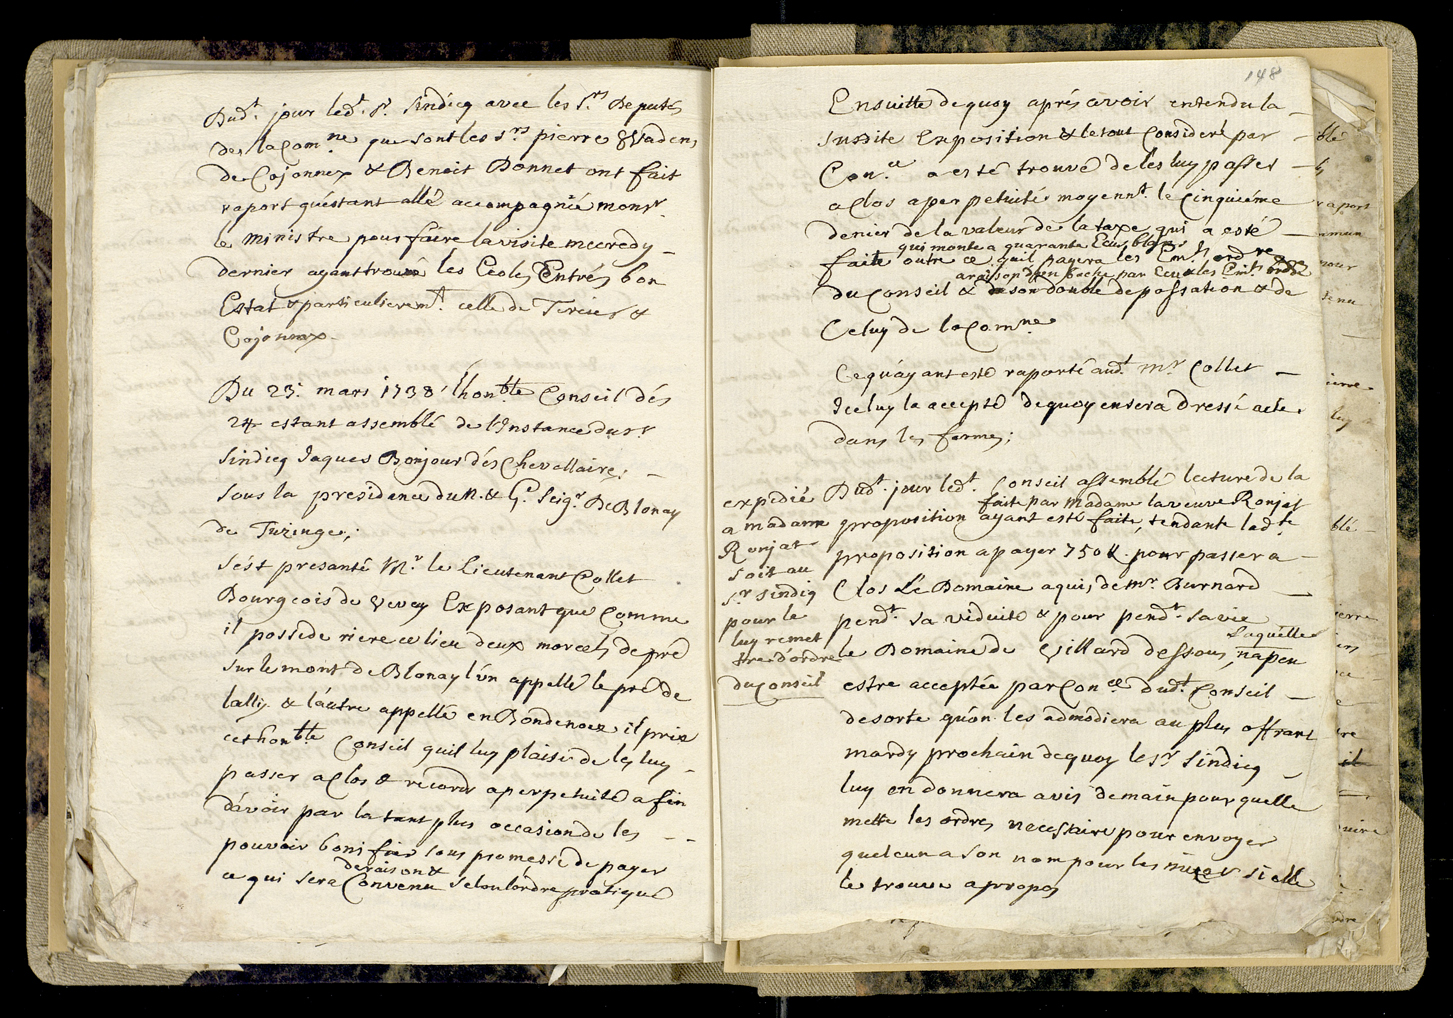 Dud.t jour led.t Sr. Sindicq avec les S.rs Deputés
de la Com.ne que sont les S.rs pierre &
de Cojonnex & Benoit Bonnet ont fait
raport qu'estant allé accompagnié monsr.
le ministre pour faire la visite mecredy
dernier ayant trouvé les Ecoles Entrés bon
Estat & particulierem.t celle de Tercier &
Cojonnex.
Du 23.e mars 1738 l'hon.ble Conseil dés
24 estant assemblé de l'Instance du Sr.
Sindicq Jaques Bonjour dés Chevallaire;
Sous la presidence du N. & G.x Seig.r De Blonay
de Tuzinge;
S'est presanté Mr. le Lieutenant Collet
Bourgeois de Vevey Exposant que Comme
il possede riere ce lieu deux morcels de pré
sur le mont de Blonay l'ún appellé le pré de
lally & l'áutre appellé en Bondenoez il prie
cet hon.ble Conseil quil luy plaise de les luy
passer a Clos & record a perpetuité a fin
d'avoir par la tant plus occasion de les
pouvoir bonifier sous promesse de payer
de raison &
ce qui sera Convenu Selon l'ordre pratiqué
148
Ensuitte de quoy aprés avoir entendu la
susdite Exposition & le tout Consideré par
Con.ce a esté trouvé de les luy passer
a Clos a perpetuité moyenn.t le Cinquiéme
denier de la valeur de la taxe qui a esté
qui monte a quarante Ecus blancs
faite outre ce quil payera les Em.ts ordre
a raison d'un bache par Ecu & les Em.ts
du Conseil & de son double de passation & de
Celuy de la Com.ne
Ce quáyant esté raporté aud.t Mr Collet
Iceluy la accepté de quoy en sera Dressé acte
dans les formes;
Dud.t jour led.t Conseil assemblé lecture de la
faite par Madame la veuve Ronjat
proposition ayant esté faite, tendante lad.te
proposition a payer 750 ff. pour passer a
Clos Le Domaine aquis de Mr Burnard
pend.t sa viduité & pour pend.t sa vie
Laquelle
le Domaine de Gillard dessous, na peu
estre acceptée par Con.ce dud.t Conseil
de sorte qu'on les admodiera au plus offrant
mardy prochain de quoy le Sr. Sindicq
luy en donnera avis demain pour quelle
mette les ordres necessaire pour envoyer
quelcun a son nom pour les miser si elle
le trouve a propos
expedié
a madame
Ronjat
soit au
S.r Sindiq
pour le
luy remet
tre d'ordre
du Conseil